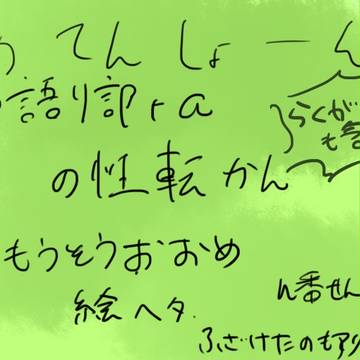 てんしょーん
語り部ra
の性転かん
らくが
も
もうそうおおめ
絵ヘタ.
n番せん
ふざけたのもアリ